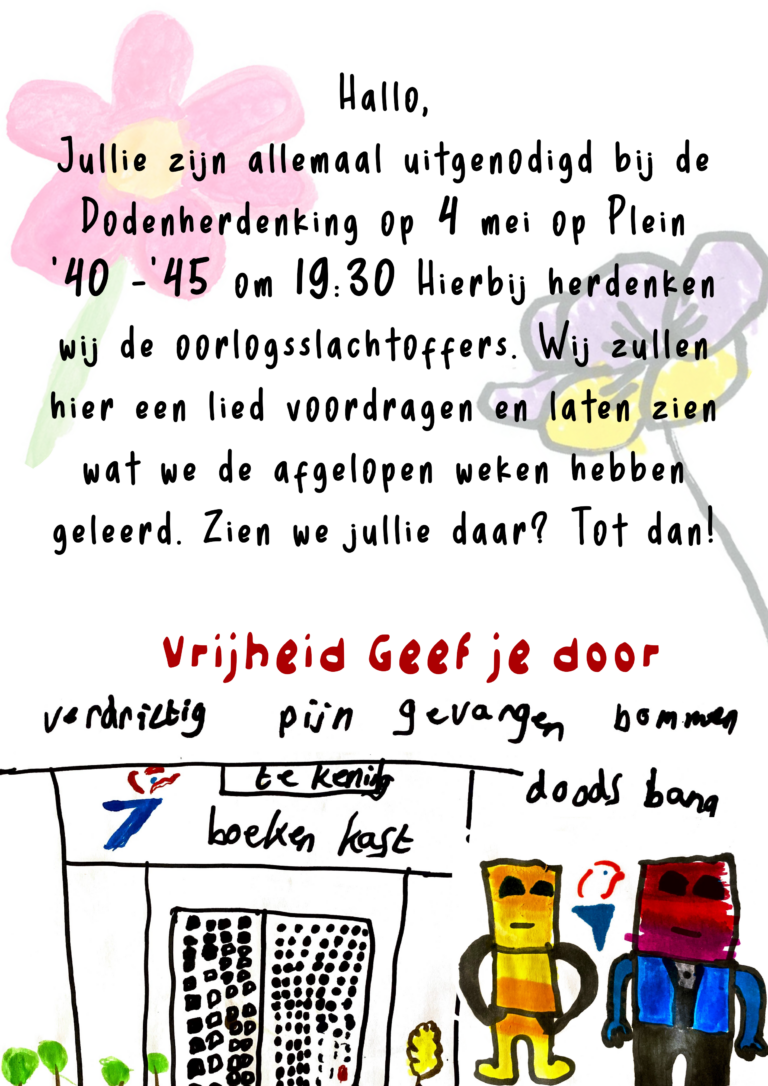 Hallo,
Jullie zijn allemaal uitgenodigd bij de
Dodenherdenking op 4 mei op Plein
'40 -'45 om 19:30 Hierbij herdenken
wij de oorlogsslachtoffers. Wij zullen
hier een lied voordragen en laten zien
wat we de afgelopen weken hebben
geleerd. Zien we jullie daar? Tot dan!
Vrijheid Geef je door
verdriltig pijn gevangen bommen
te kening
doods bang
boeken kast